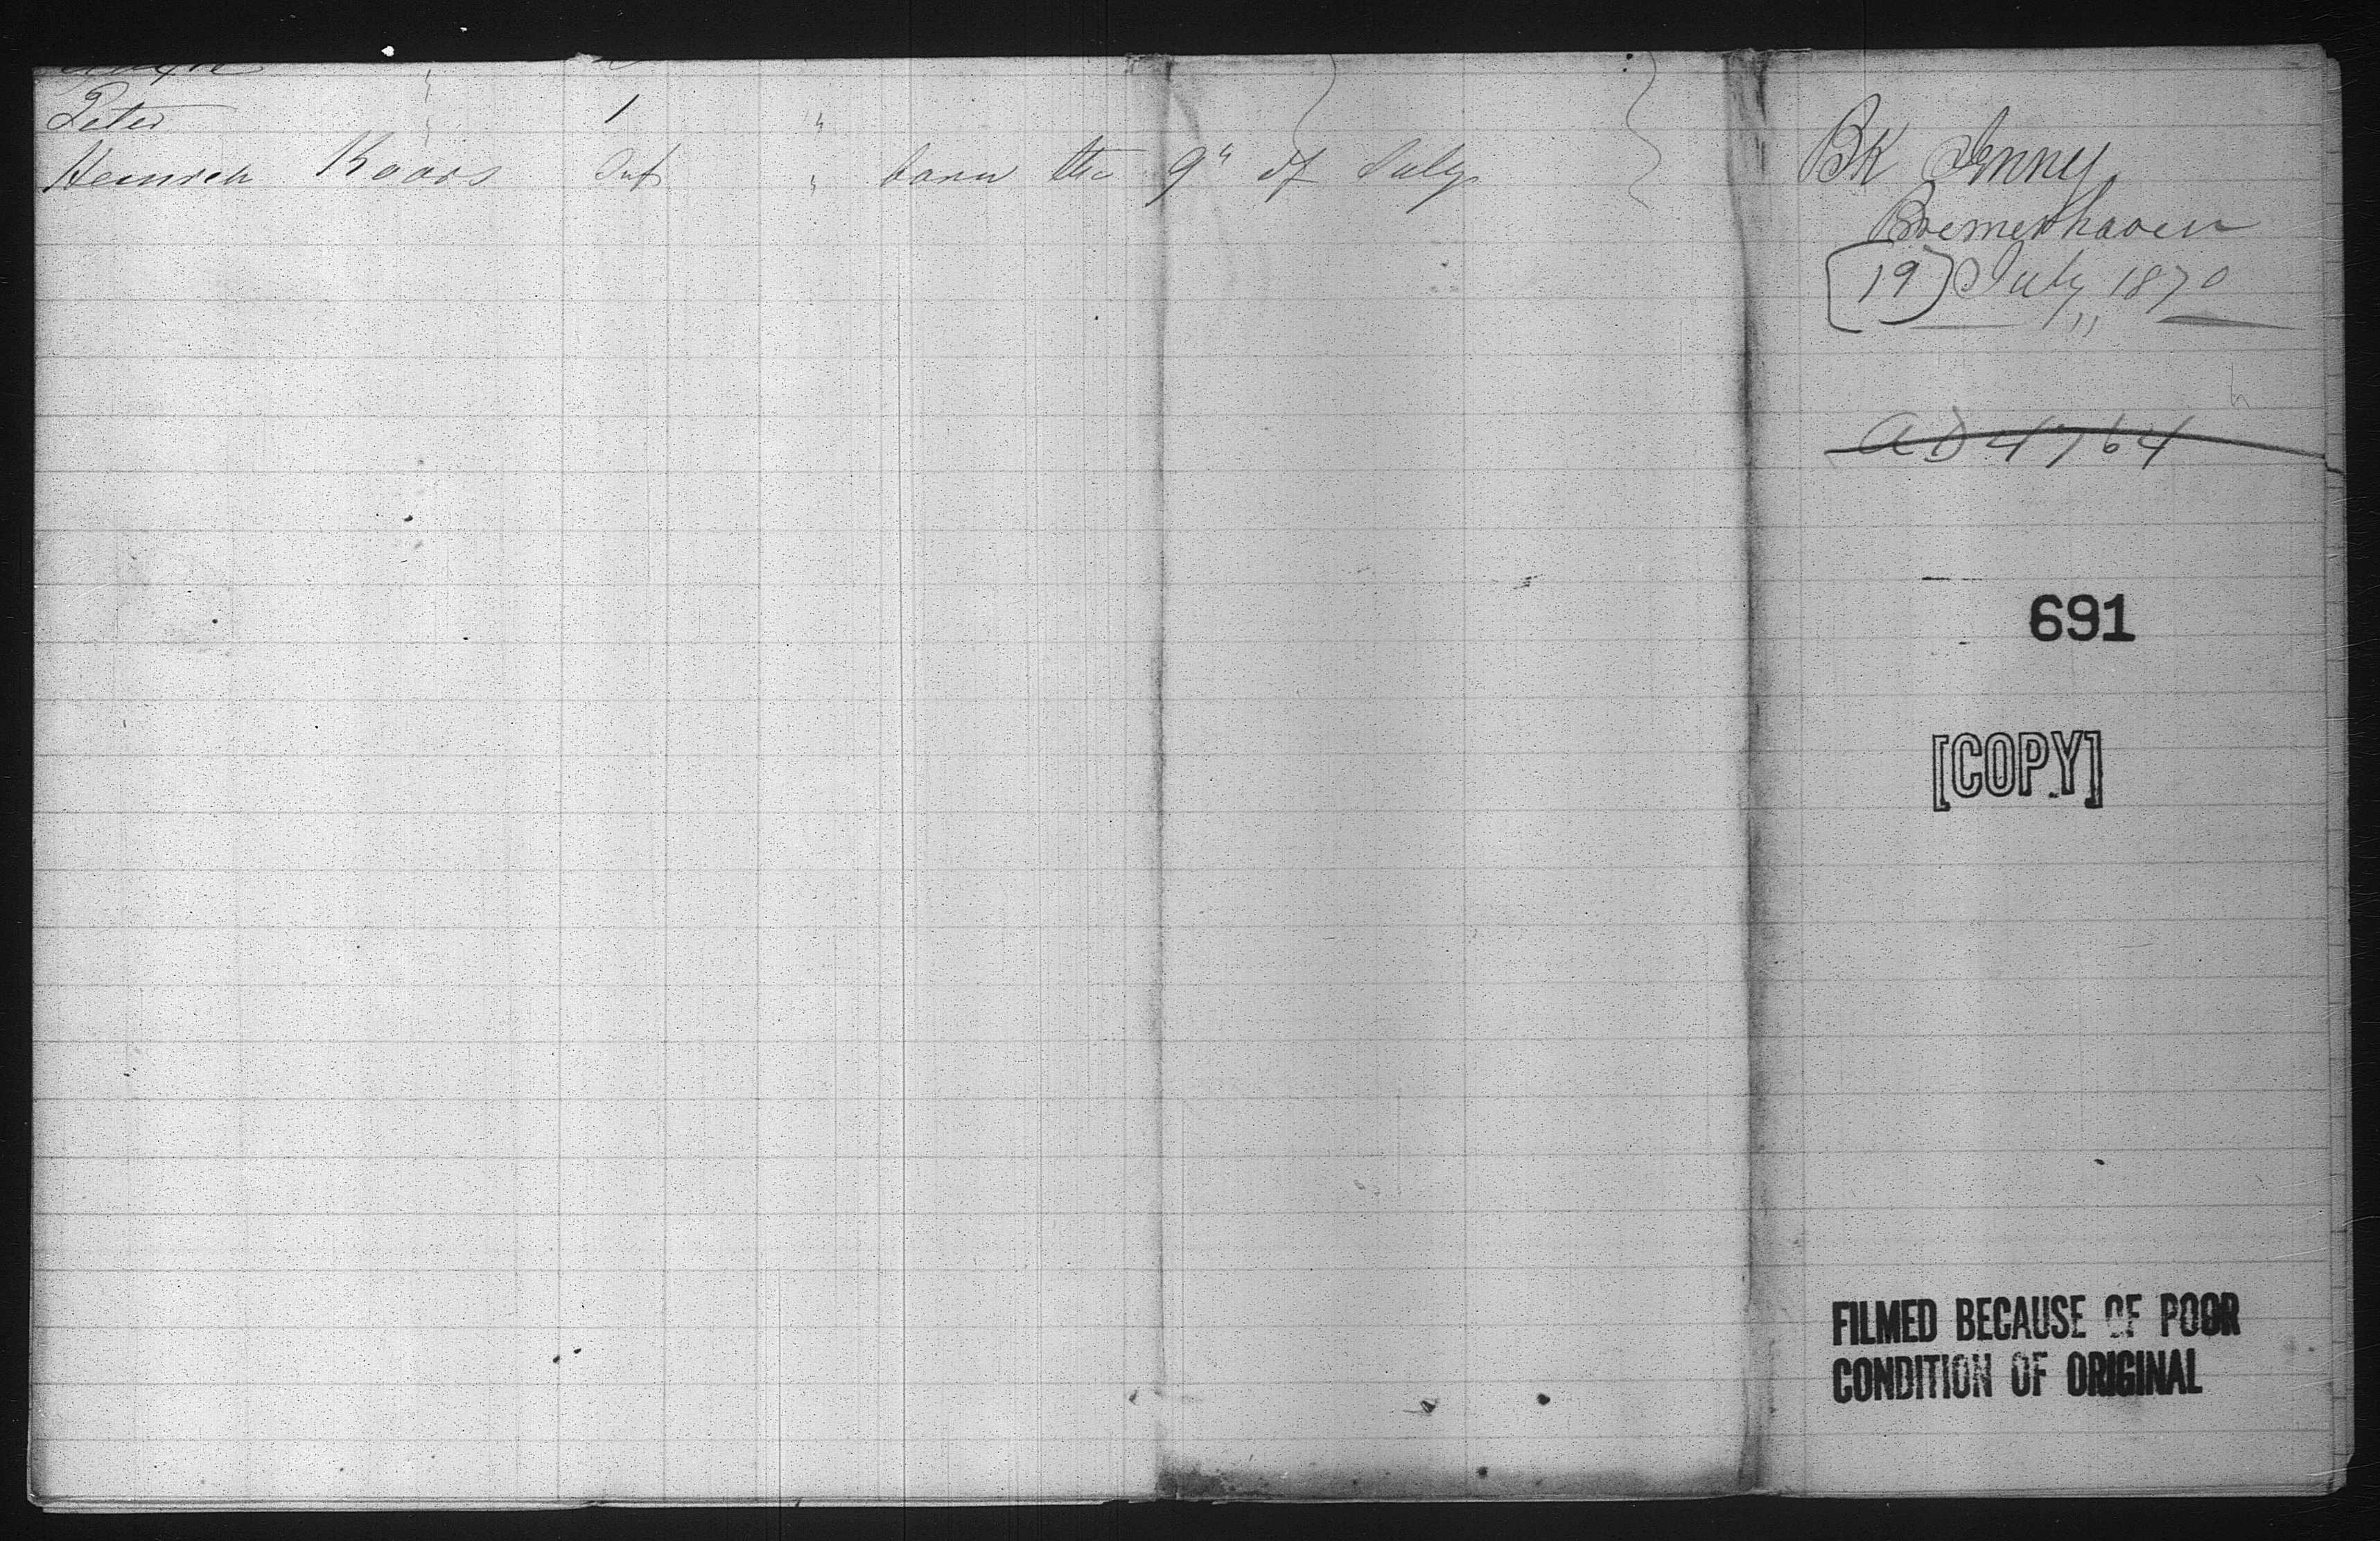 Peter " 1 "
Heinrich Koors Inf " born the 9" of July
BK Jenny
Bremerhaven
19 July 1870
"
AD 4764
691
[COPY]
FILMED BECAUSE OF POOR
CONDITION OF ORIGINAL